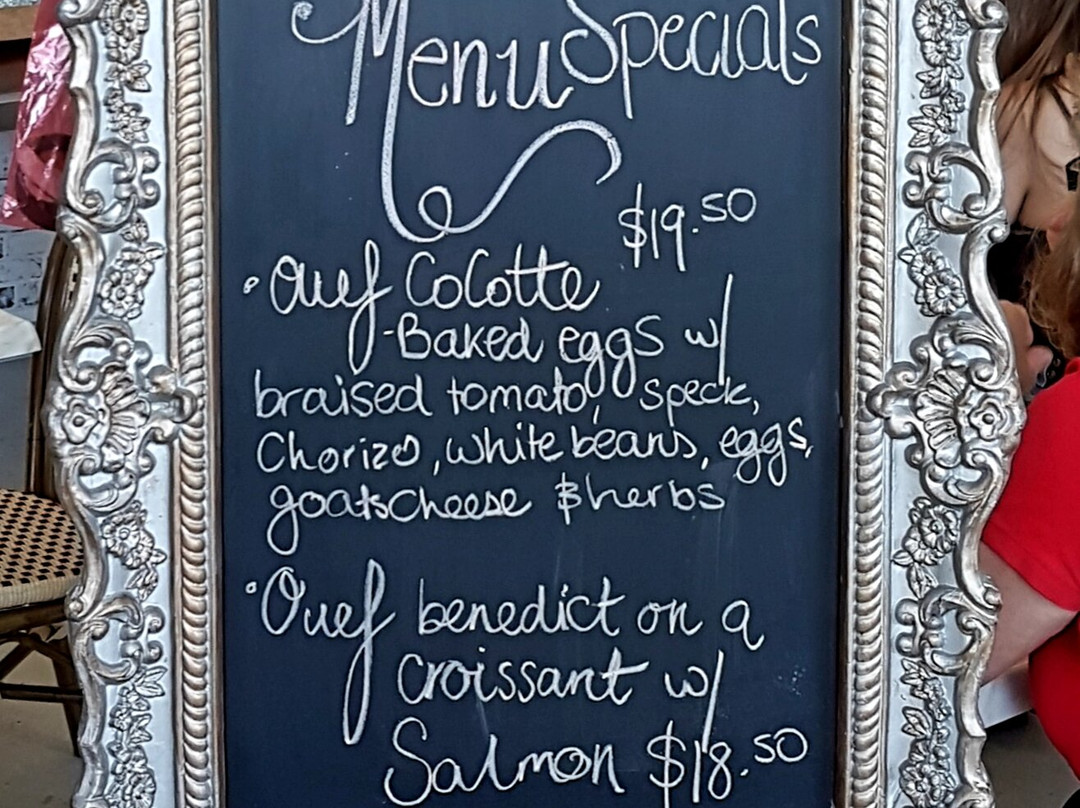 Menu Specials
$19.50
• Ouef CoCotte
-Baked eggs w/
braised tomato, speck,
Chorizo, white beans, eggs,
goatscheese & herbs
• Ouef benedict on a
croissant w/
Salmon $18.50